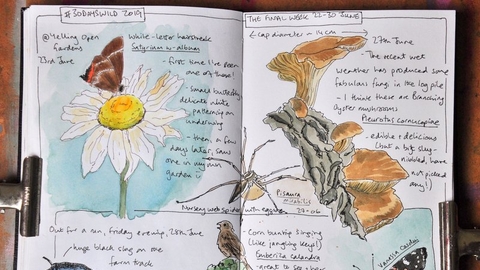 #30DAYSWILD 2019
@Yelling Open
Gardens
23rd June
White-letter hairstreak
Satyrium w-album
- first time I've seen
one of these!
- small butterfly
delicate white
patterning on
underwing
- then, a few
days later, saw
one in my own
garden
THE FINAL WEEK 22-30 JUNE
cap diameter ~ 14cm
27th June
- The recent wet
weather has produced some
fabulous fungi in the log pile
- I think these are Branching
Oyster mushrooms
Pleurotus cornucopiae
- edible & delicious
(but a bit slug-
nibbled, have
not picked
any!)
Pisaura
mirabilis
Nursery web spider with egg sac
27-06
Out for a run, Friday evening, 28th June
- huge black slug on one
farm track
- Corn bunting singing
(like jangling keys!)
Emberiza calandra
- great to see & hear
Vanessa cardui